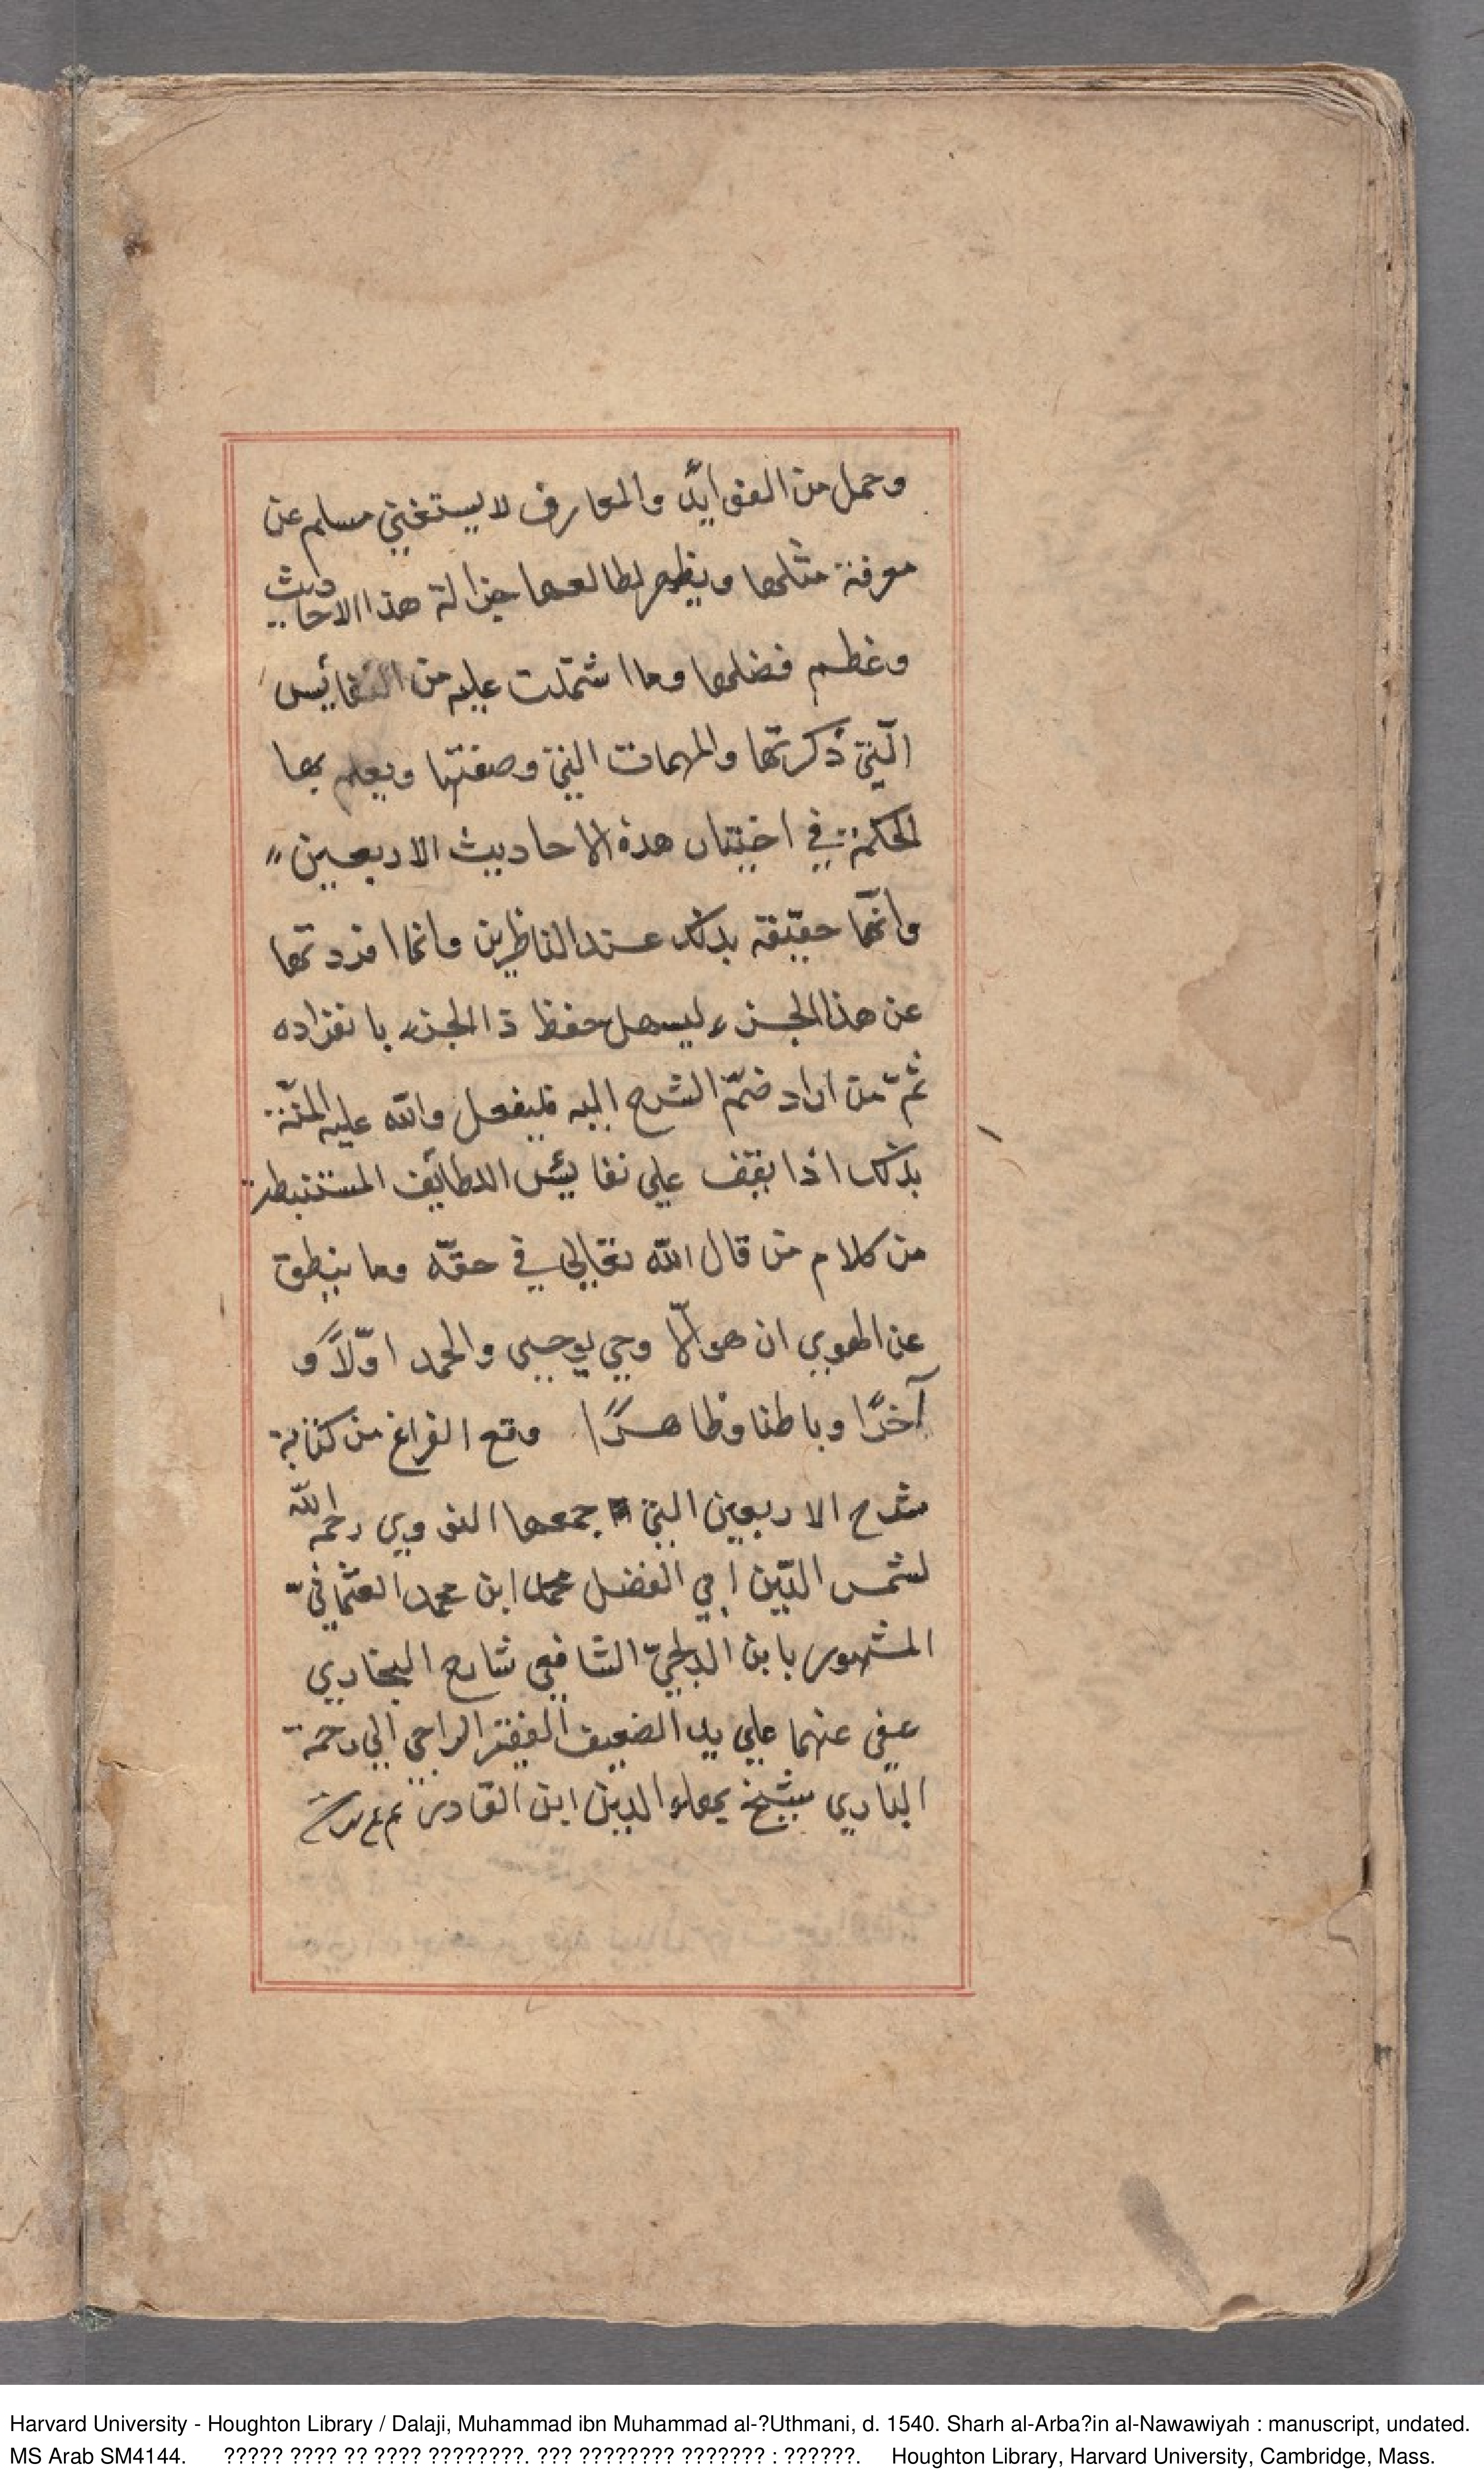 وجمل من الفوايد والمعارف لا يستغني مسلم عن
معرفة مثلها ويظهر لمطالعها جزالة هذا الاحاديث
وعظم فضلها وما اشتملت عليه من النفائس
الّتي ذكرتها والمهمات التي وصفتها ويعلم بها
الحكمة في اختيار هذه الاحاديث الاربعين
وانّها حقيقة بذلك عند الناظرين وانما افردتها
عن هذا الجزء ليسهل حفظ ذا الجزء بانفراده
ثمّ من اراد ضمّ الشرح اليه فليفعل والله عليه المنّة
بذلك اذا يقف علي نفايئس اللطائف المستنبطة
من كلام من قال الله تعالي في حقّه وما ينطق
عن الهوي ان هو الّا وحي يوحيى والحمد اوّلاً و
آخرًا وباطنا وظاهرًا وقع الفراغ من كتابة
شرح الاربعين التي جمعها النووي رحمه الله
لشمس الدّين ابي الفضل محمد ابن محمد العثمانيّ
المشهور بابن الدلجيّ الشافعي شارح البخاري
عفي عنهما علي يد الضعيف الفقير الراجي الي رحمة
الباري شيخ بهاء الدين ابن القادر
Harvard University - Houghton Library / Dalaji, Muhammad ibn Muhammad al-?Uthmani, d. 1540. Sharh al-Arba?in al-Nawawiyah : manuscript, undated.
MS Arab SM4144. ????? ???? ?? ???? ????????. ??? ???????? ??????? : ??????. Houghton Library, Harvard University, Cambridge, Mass.